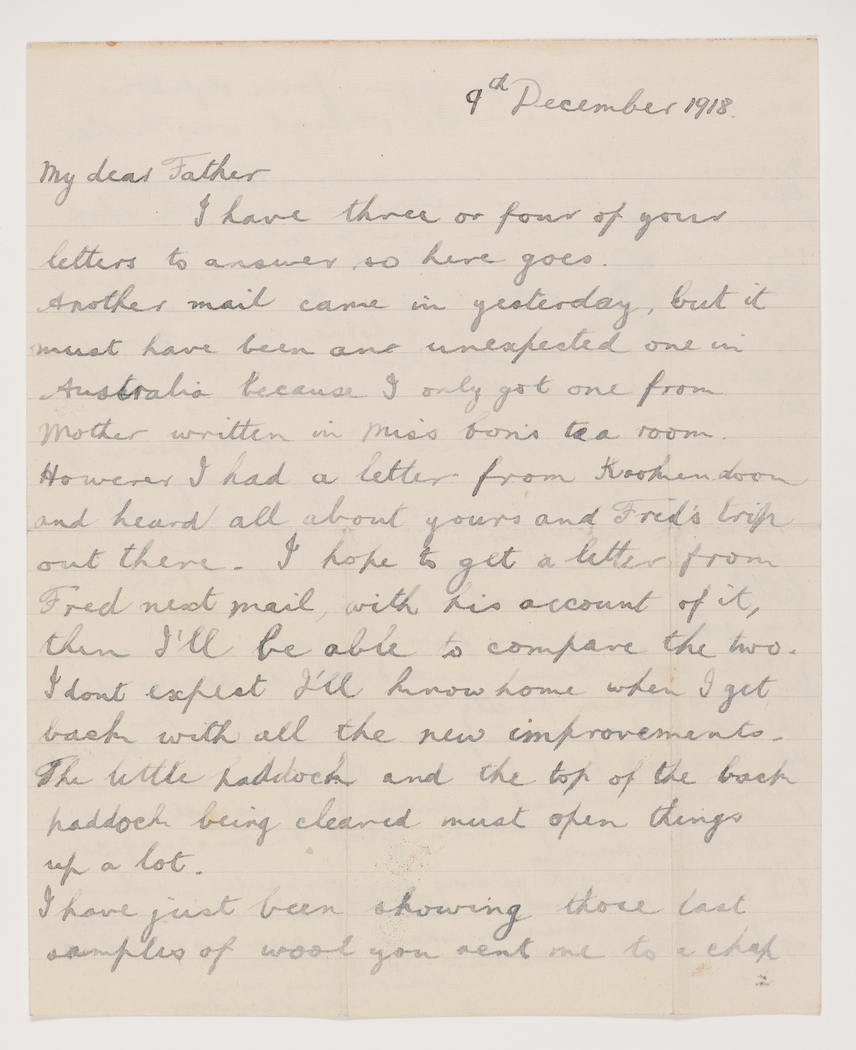 9th December 1918.
My dear Father
I have three or four of your
letters to answer, so here goes.
Another mail came in yesterday, but it
must have been an unexpected one in
Australia because I only got one from
Mother written in Miss tea room.
However I had a letter from
and heard all about yours and Fred's trip
out there. I hope to get a letter from
Fred next mail, with his account of it,
then I'll be able to compare the two.
I dont expect I'll know home when I get
back with all the new improvements.
The little paddock and the top of the back
paddock being cleared must open things
up a lot.
I have just been showing those last
samples of wool you sent me to a chap